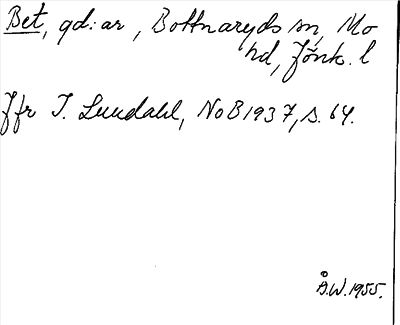 Bet, gd:ar, Bottnaryds sn, Mo
hd, Jönk. l
Jfr I. Lundahl, NoB 1937, s. 64.
Å.W. 1955.